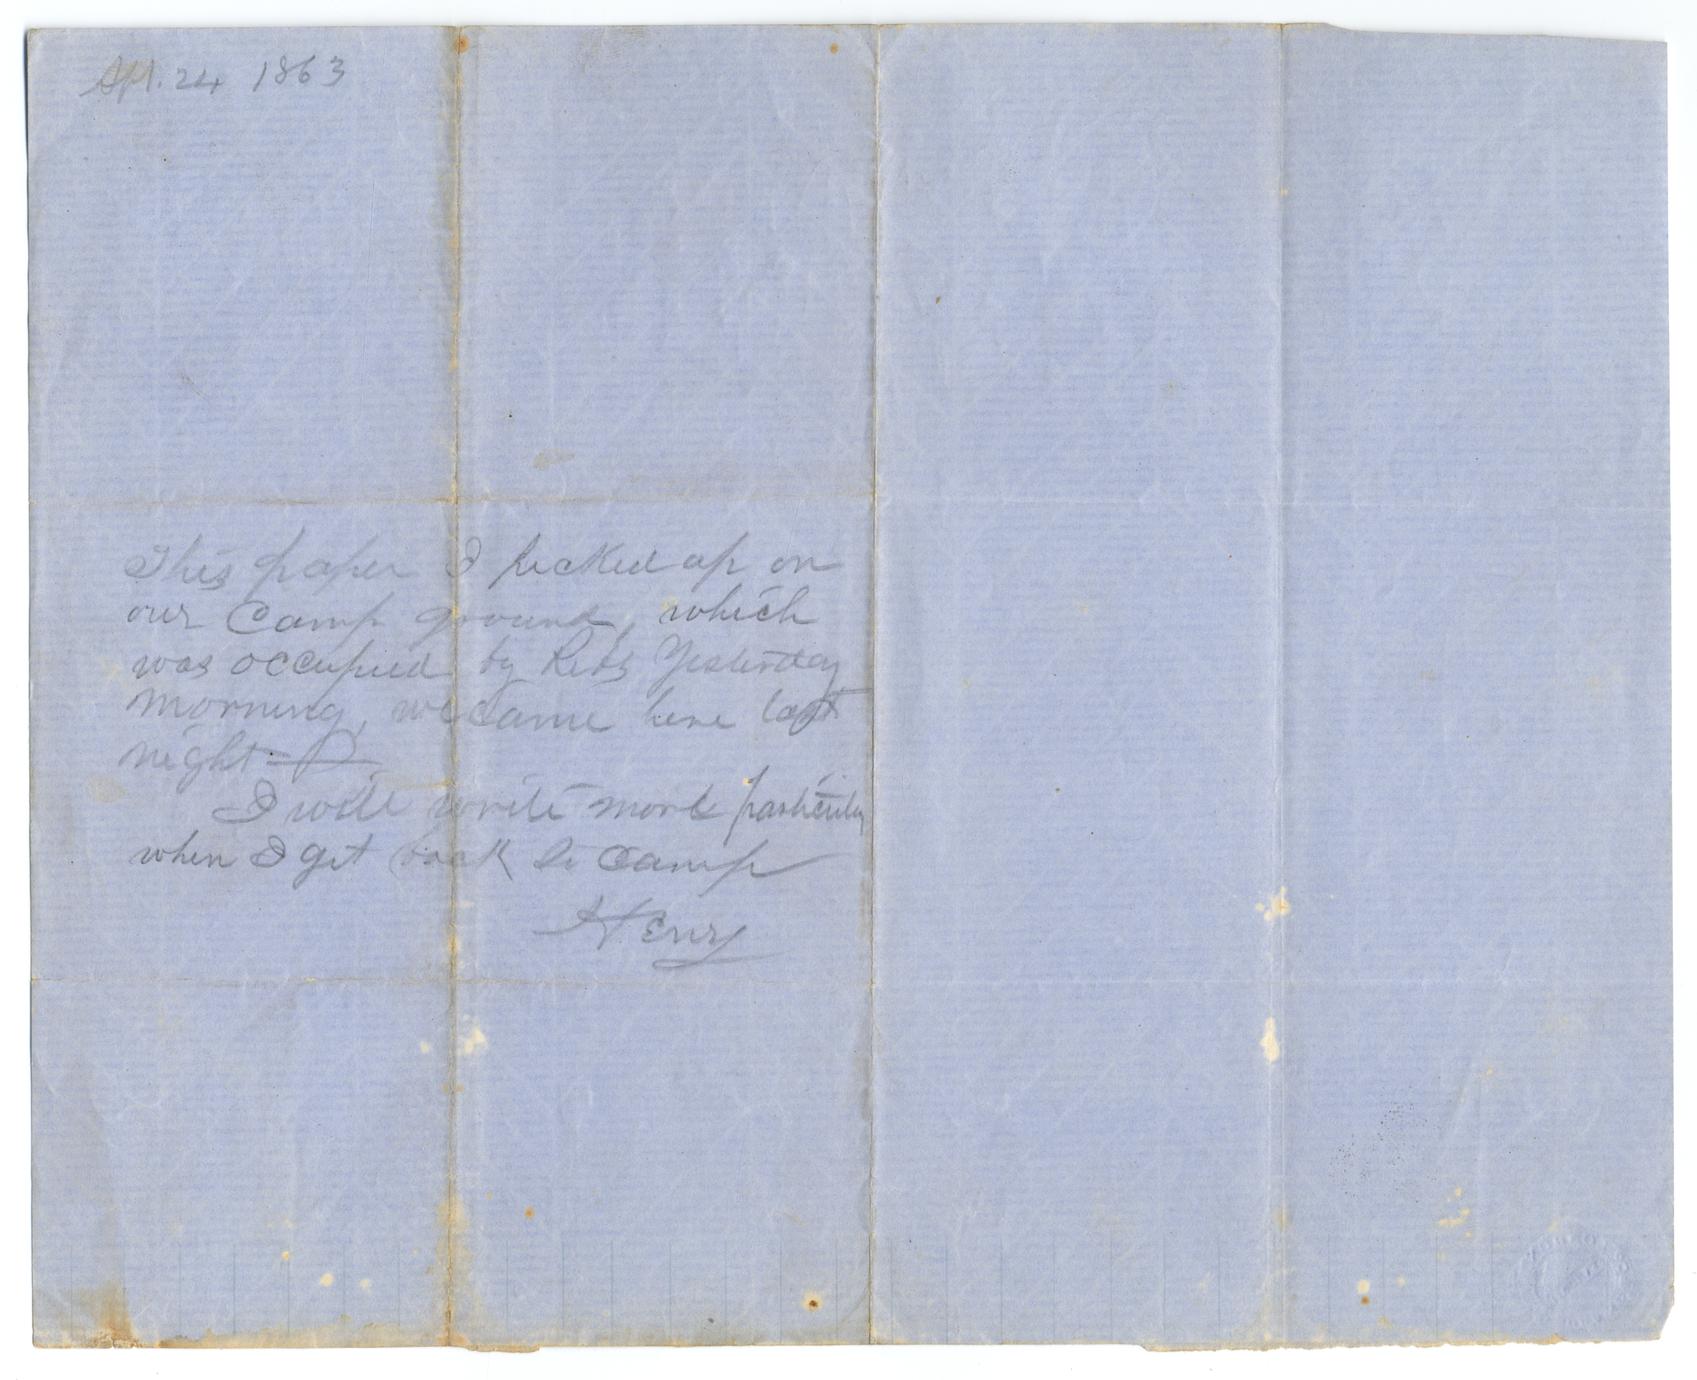 Apl. 24 1863
This paper I picked up on
our Camp ground, which
was occupied by Rebs Yesterday
morning, we came here last
night—
I will write more particular
when I get back to camp
Henry